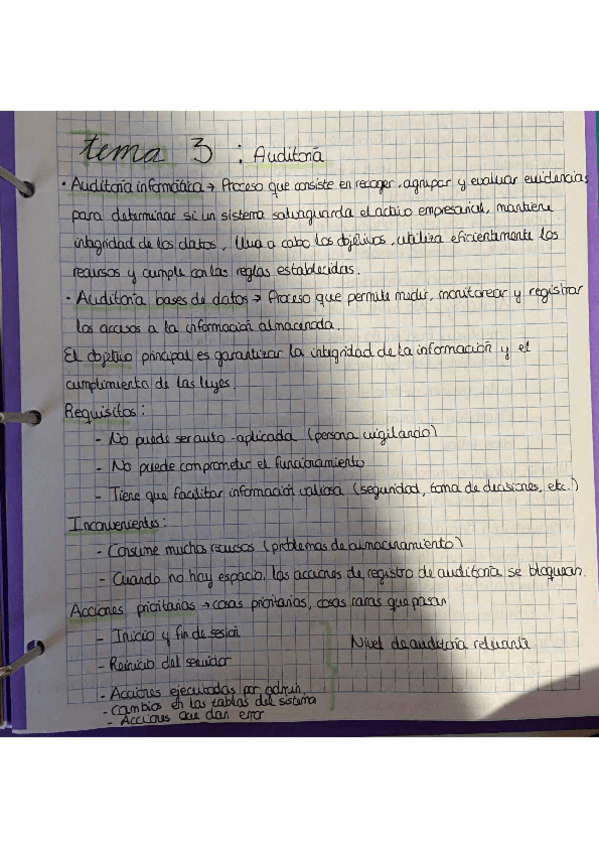 tema 3 : Auditoría
· Auditoría informática → Proceso que consiste en recoger, agrupar y evaluar evidencias
para determinar si un sistema salvaguarda el activo empresarial, mantiene
integridad de los datos, lleva a cabo los objetivos, utiliza eficientemente los
recursos y cumple con las reglas establecidas.
· Auditoría bases de datos → Proceso que permite medir, monitorear y registrar
los accesos a la información almacenada.
El objetivo principal es garantizar la integridad de la información y el
cumplimiento de las leyes.
Requisitos:
- No puede ser auto-aplicada (persona vigilando)
- No puede comprometer el funcionamiento
- Tiene que facilitar información valiosa (seguridad, toma de decisiones, etc.)
Inconvenientes:
- Consume muchos recursos (problemas de almacenamiento)
- Cuando no hay espacio, las acciones de registro de auditoría se bloquean.
Acciones prioritarias → cosas prioritarias, cosas raras que pasan
- Inicio y fin de sesión
- Reinicio del servidor
- Acciones ejecutadas por admin
- cambios en las tablas del sistema
- Acciones que dan error
Nivel de auditoría relevante